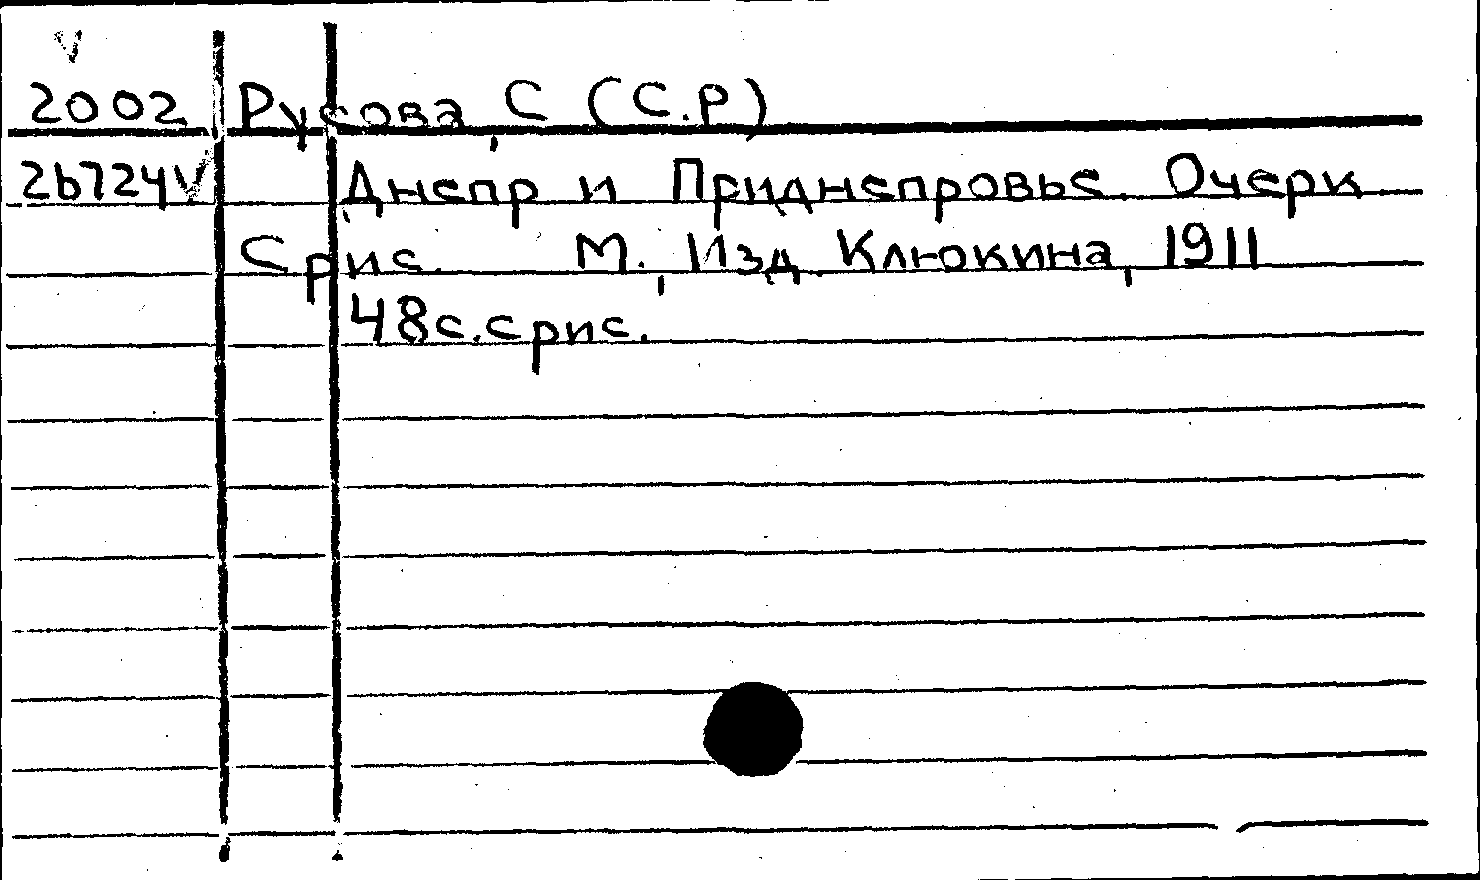 V
2002 Русова, С (С.Р)
2b724V Днепр и Приднепровье. Очерк
С рис. М., Изд. Клюкина, 1911
48с.с рис.